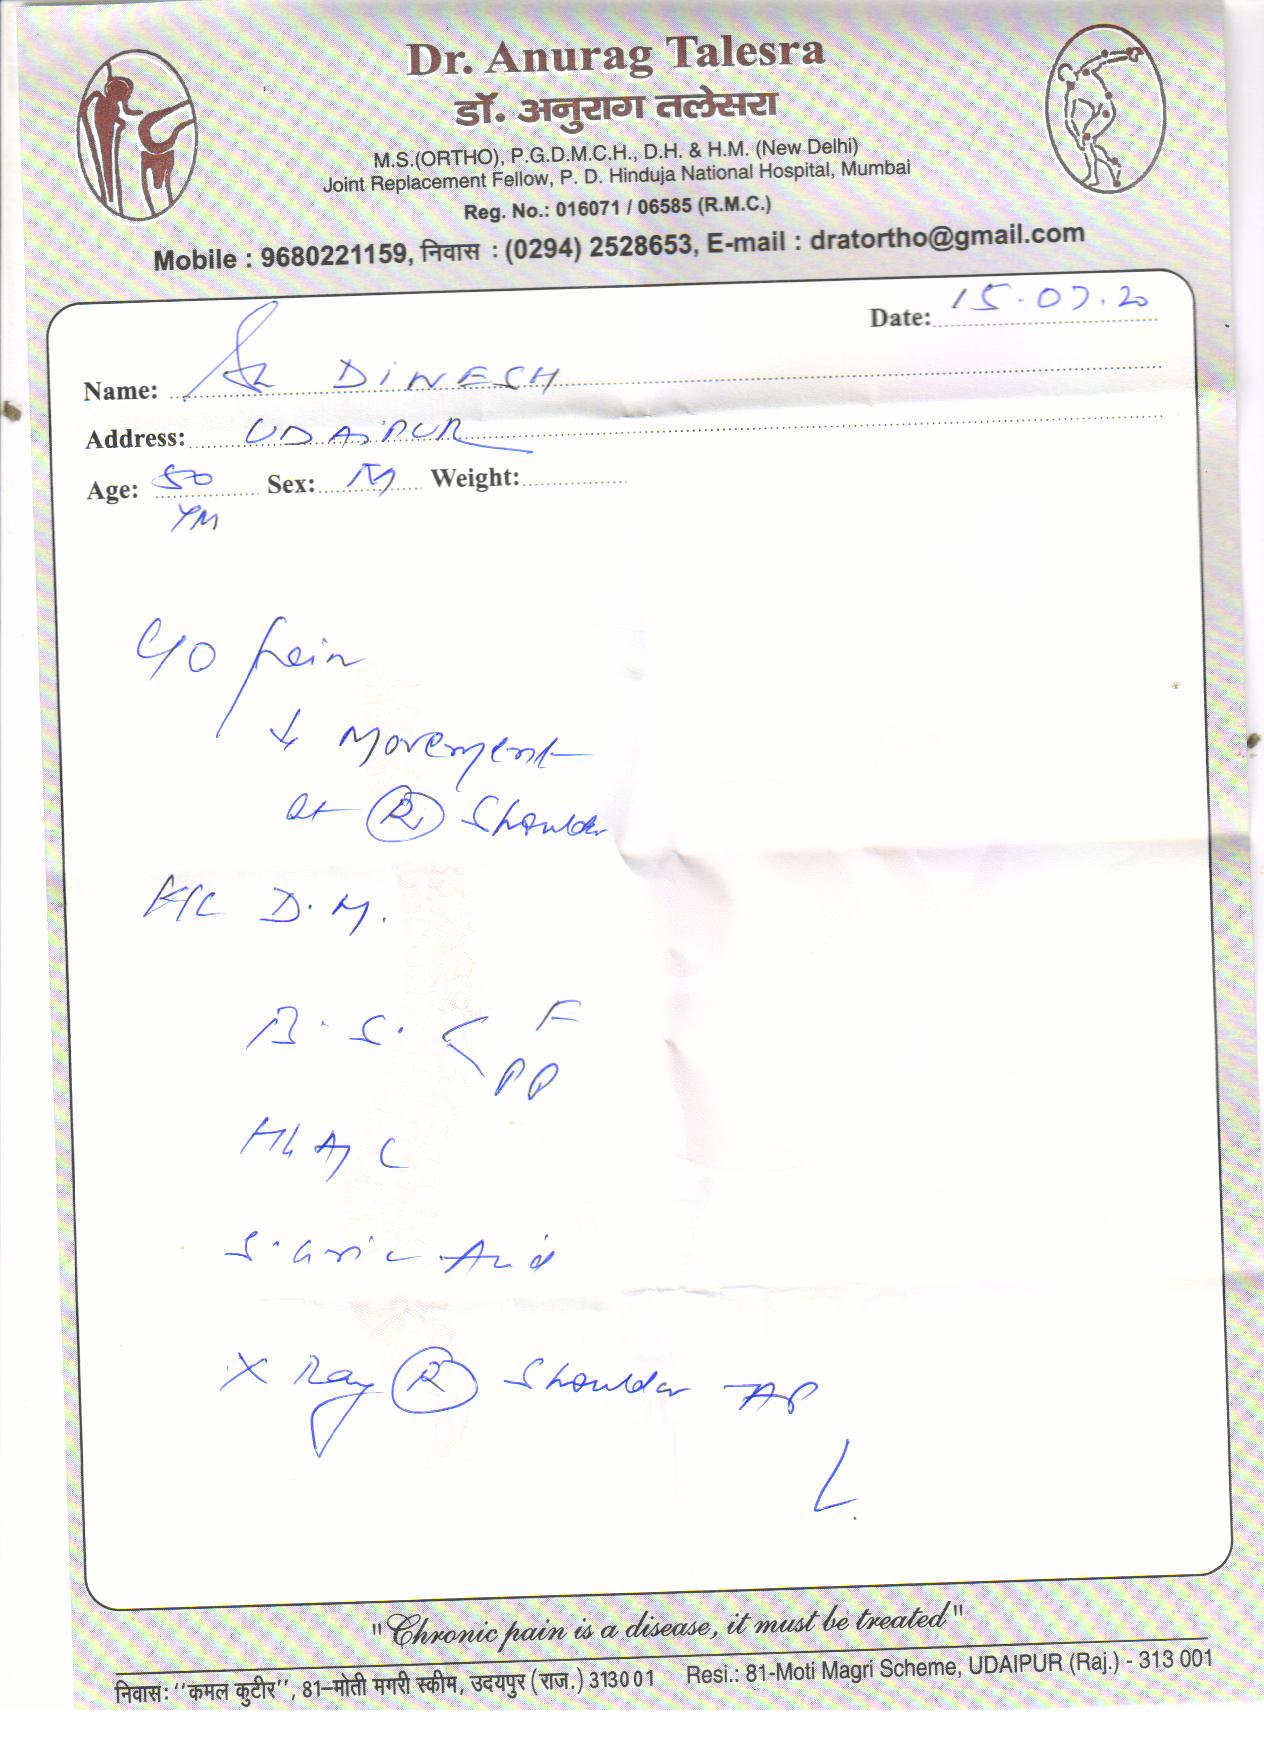 Dr. Anurag Talesra
डॉ. अनुराग तलेसरा
M.S.(ORTHO), P.G.D.M.C.H., D.H. & H.M. (New Delhi)
Joint Replacement Fellow, P. D. Hinduja National Hospital, Mumbai
Reg. No.: 016071 / 06585 (R.M.C.)
Mobile : 9680221159, निवास : (0294) 2528653, E-mail : dratortho@gmail.com
Date: 15.07.20
Name: DINESH
Address: UDAIPUR
Age: 50 Sex: M Weight:
C/O Pain
↓ Movement
at R Shoulder
K/C D.M.
B.S. < F
PP
HbA1C
S. Uric Acid
X Ray R Shoulder AP
L
"Chronic pain is a disease, it must be treated"
निवास: ‘‘कमल कुटीर’’, 81–मोती मगरी स्कीम, उदयपुर (राज.) 313001 Resi.: 81-Moti Magri Scheme, UDAIPUR (Raj.) - 313 001